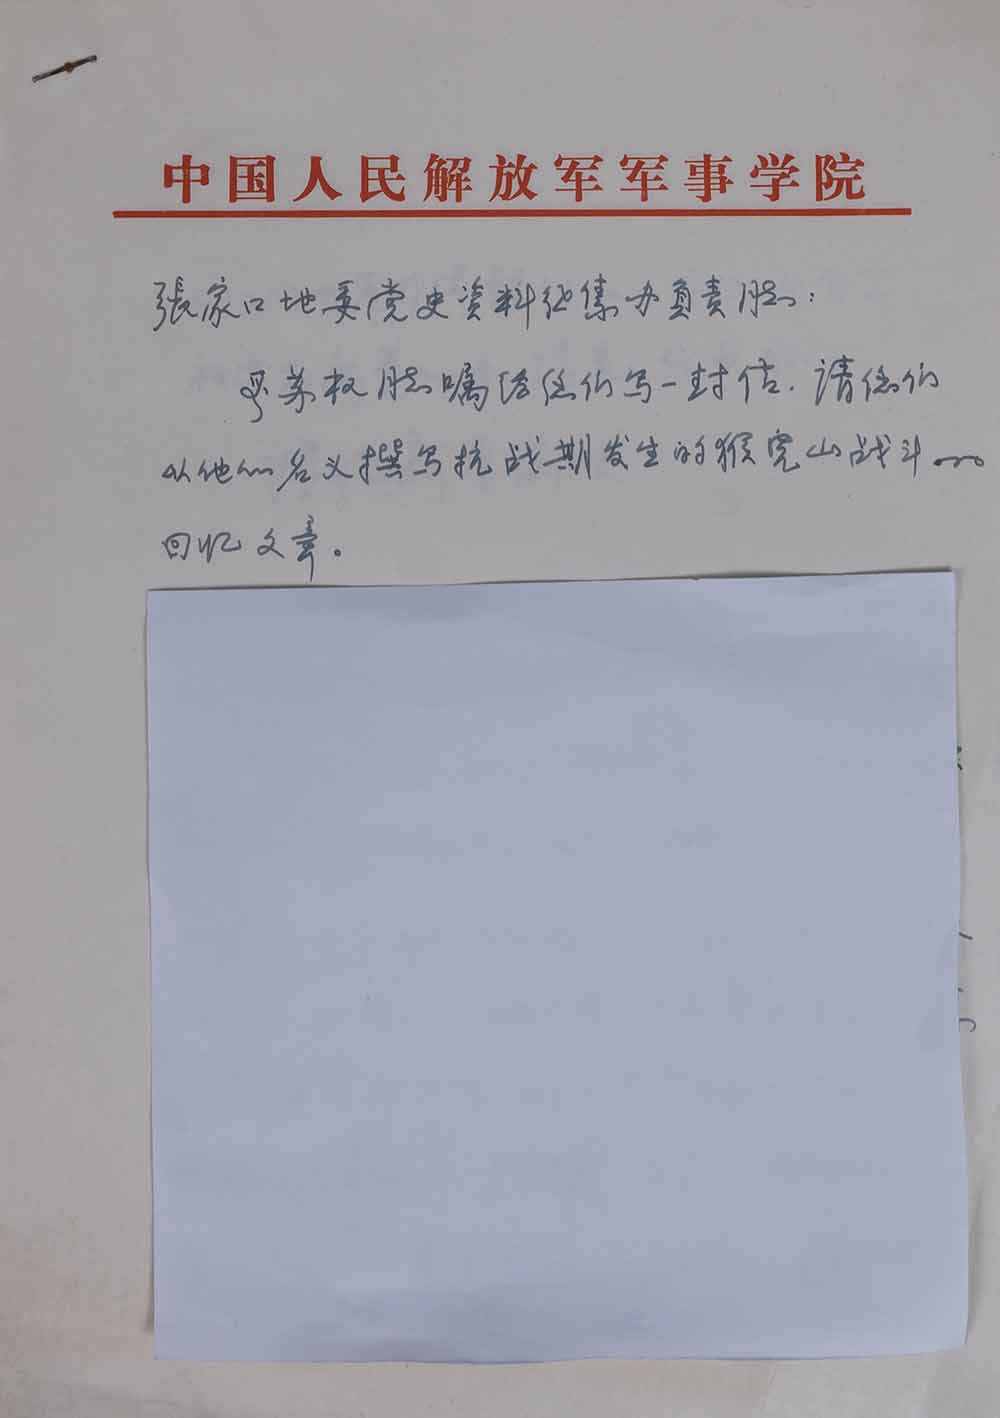 中国人民解放军军事学院
張家口地委党史资料征集办負责同志：
苏权同志嘱给你们写一封信，请你们
以他的名义撰写抗战期发生的猴儿山战斗
回忆文章。